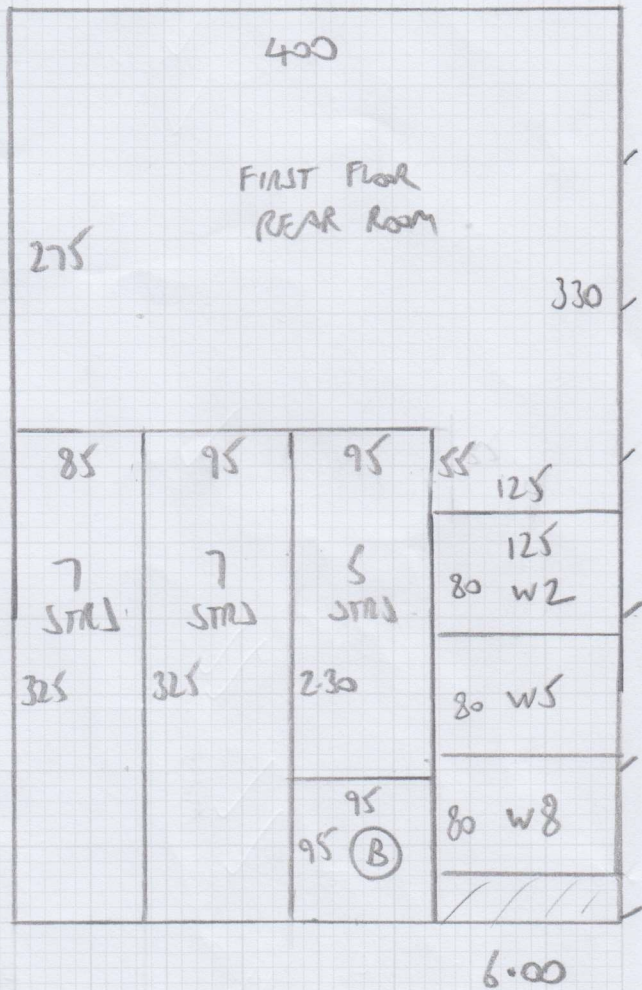 400
FIRST FLOOR
REAR ROOM
275
330
85
95
95
55
125
7
STRS
7
STRS
5
STRS
125
80 W2
325
325
2.30
80 W5
95
95 B
80 W8
6.00